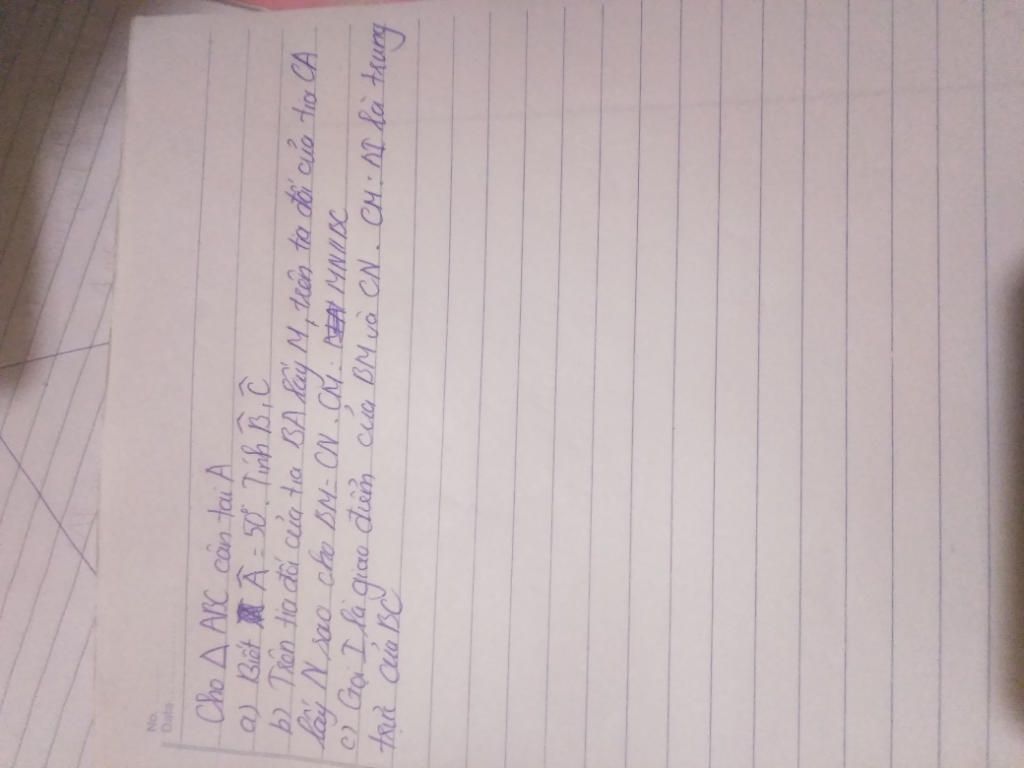 No.
Date
Cho Δ ABC cân tại A
a) Biết Â = 50°. Tính B̂, Ĉ
b) Trên tia đối của tia BA lấy M, trên ta đối của tia CA
lấy N sao cho BM = CN. CM: MN//BC
c) Gọi I là giao điểm của BM và CN. CM: AI là trung
trực của BC